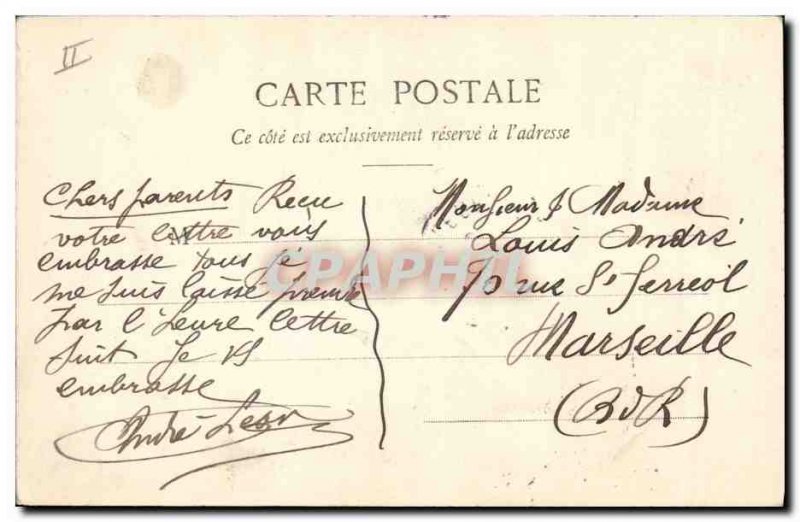 II
CARTE POSTALE
Ce côté est exclusivement réservé à l'adresse
Chers parents Reçu
votre lettre vous
embrasse tous je
me suis laissé prendre
par l'heure lettre
suit Je vs
embrasse
André
Monsieur & Madame
Louis André
rue St Ferreol
Marseille
(B d R)
CPAPHIL